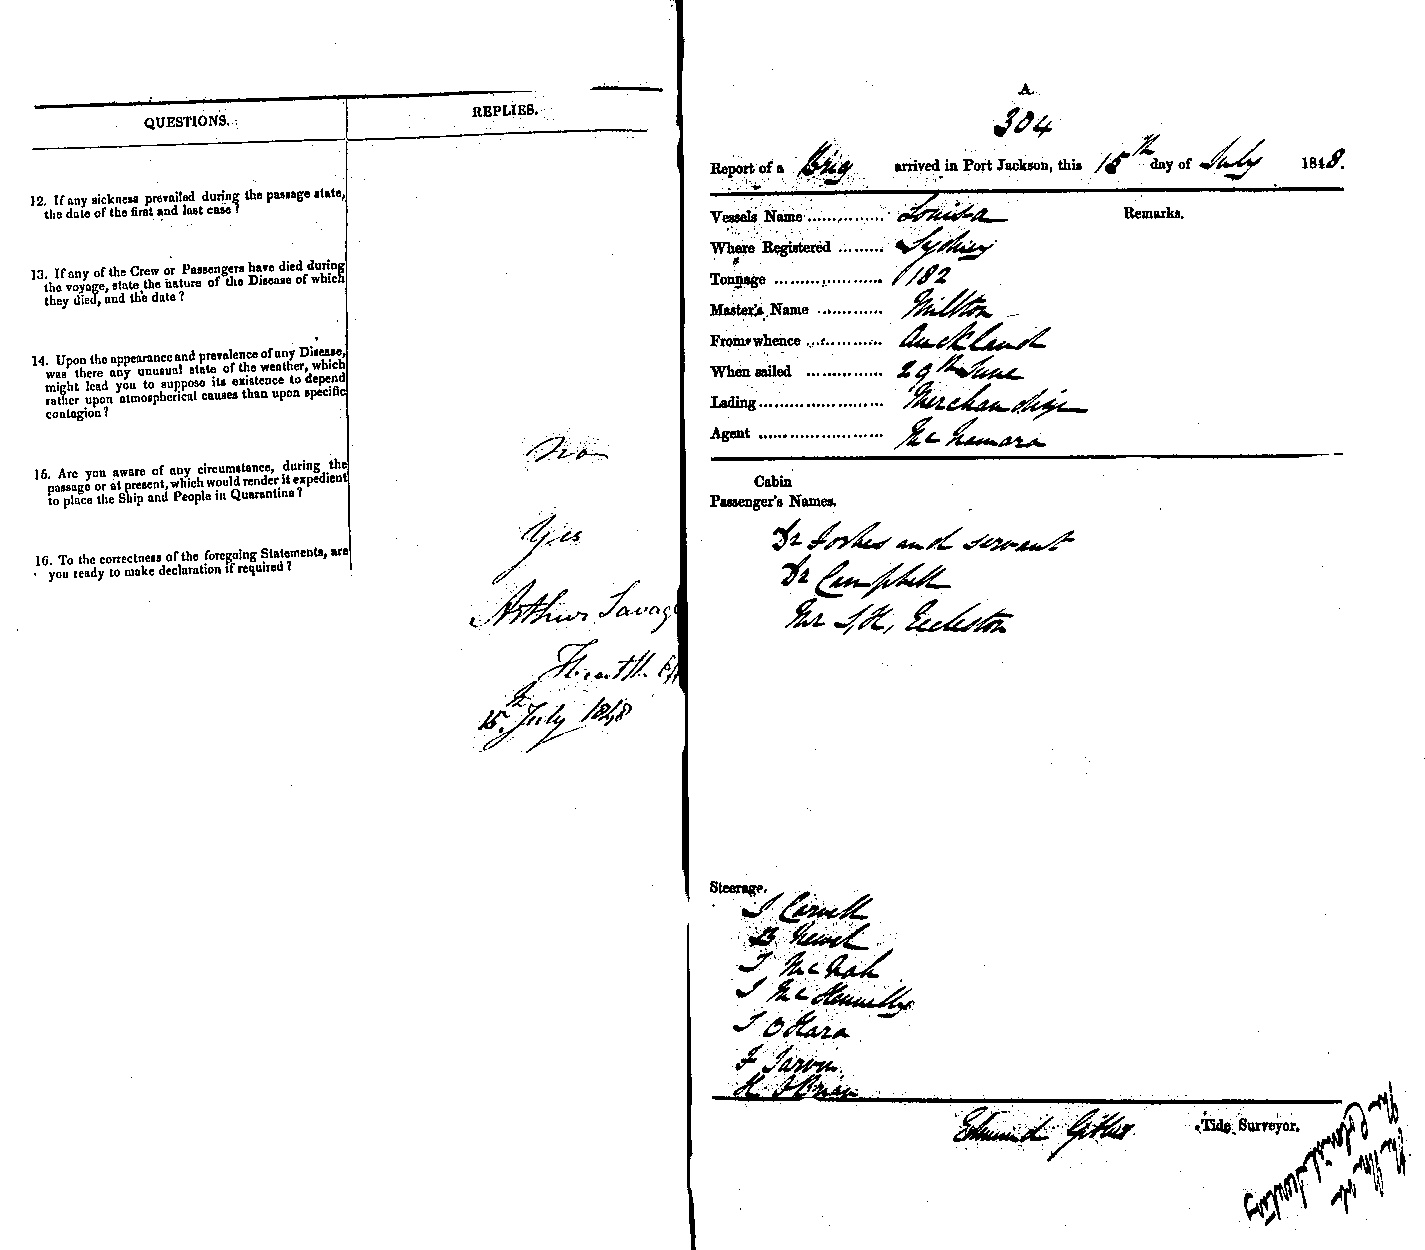 QUESTIONS.
REPLIES.
12. If any sickness prevailed during the passage state,
the date of the first and last case?
13. If any of the Crew or Passengers have died during
the voyage, state the nature of the Disease of which
they died, and the date?
14. Upon the appearance and prevalence of any Disease,
was there any unusual state of the weather, which
might lead you to suppose its existence to depend
rather upon atmospherical causes than upon specific
contagion?
15. Are you aware of any circumstance, during the
passage or at present, which would render it expedient
to place the Ship and People in Quarantine?
No
16. To the correctness of the foregoing Statements, are
you ready to make declaration if required?
Yes
Arthur Savage
Health
15th July 1848
A.
304
Report of a Brig arrived in Port Jackson, this 15th day of July 1848.
Vessels Name ............... Louisa
Remarks.
Where Registered ......... Sydney
Tonnage ..................... 182
Master's Name ............ Millton
From whence ............... Auckland
When sailed ............... 29th June
Lading ........................ Merchandise
Agent ........................ McNamara
Cabin
Passenger's Names.
Dr Forbes and servant
Dr Campbell
Mr S, H, Eccleston
Steerage.
J
B
J Mc
J Mc
J O Hara
F
H O Brien
Edmund Gibbes Tide Surveyor.
The Colonial Secretary